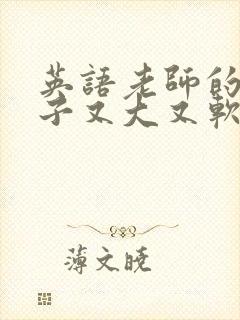 英語老師的
子又大又軟
薄文曉